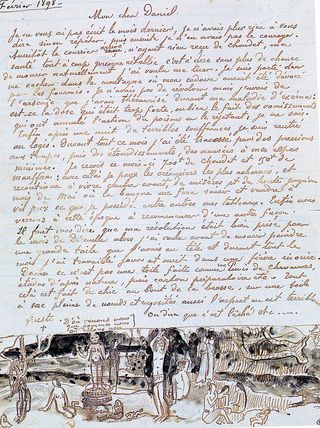 Février 1898 -
Mon cher Daniel.
Je ne vous ai pas écrit le mois dernier, je n'avais plus rien à vous
dire sinon répéter, puis ensuite je n'en avais pas le courage.
Aussitôt le courrier arrivé, n'ayant rien reçu de Chaudet, ma
santé tout à coup presque rétablie c'est à dire sans plus de chance
de mourir naturellement j'ai voulu me tuer. Je suis parti
me cacher dans la montagne où mon cadavre aurait été dévoré
par les fourmis. Je n'avais pas de revolver mais j'avais de
l'arsenic que j'avais thésaurisé durant ma maladie d'eczéma:
est-ce la dose qui était trop forte, ou bien le fait des vomissements
qui ont annulé l'action du poison en le rejetant; je ne sais.
Enfin après une nuit de terribles souffrances je suis rentré
au logis. Durant tout ce mois j'ai été tracassé par des pressions
aux tempes, puis des étourdissements, des nausées à mes repas
minimes. Je reçois ce mois-ci 700f de Chaudet et 150f de
Mauffra: avec cela je paye les créanciers les plus acharnés, et
recontinue à vivre comme avant, de misères et de honte jusqu'au
mois de Mai où la banque me fera saisir et vendre à
vil prix ce que je possède, entre autres mes tableaux. Enfin nous
verrons à cette époque à recommencer d'une autre façon.
Il faut vous dire que ma résolution était bien prise pour
le mois de Décembre alors j'ai voulu avant de mourir peindre
une grande toile que j'avais en tête et durant tout le
mois j'ai travaillé jour et nuit dans une fièvre inouïe.
Dame ce n'est pas une toile faite comme Puvis de Chavannes,
études d'après nature, puis carton préparatoire etc. Tout
cela est fait de chic, au bout de la brosse, sur une toile
à sac pleine de noeuds et rugosités aussi l'aspect en est terrible
fruste. On dira que c'est lâché etc...
D'où venons nous